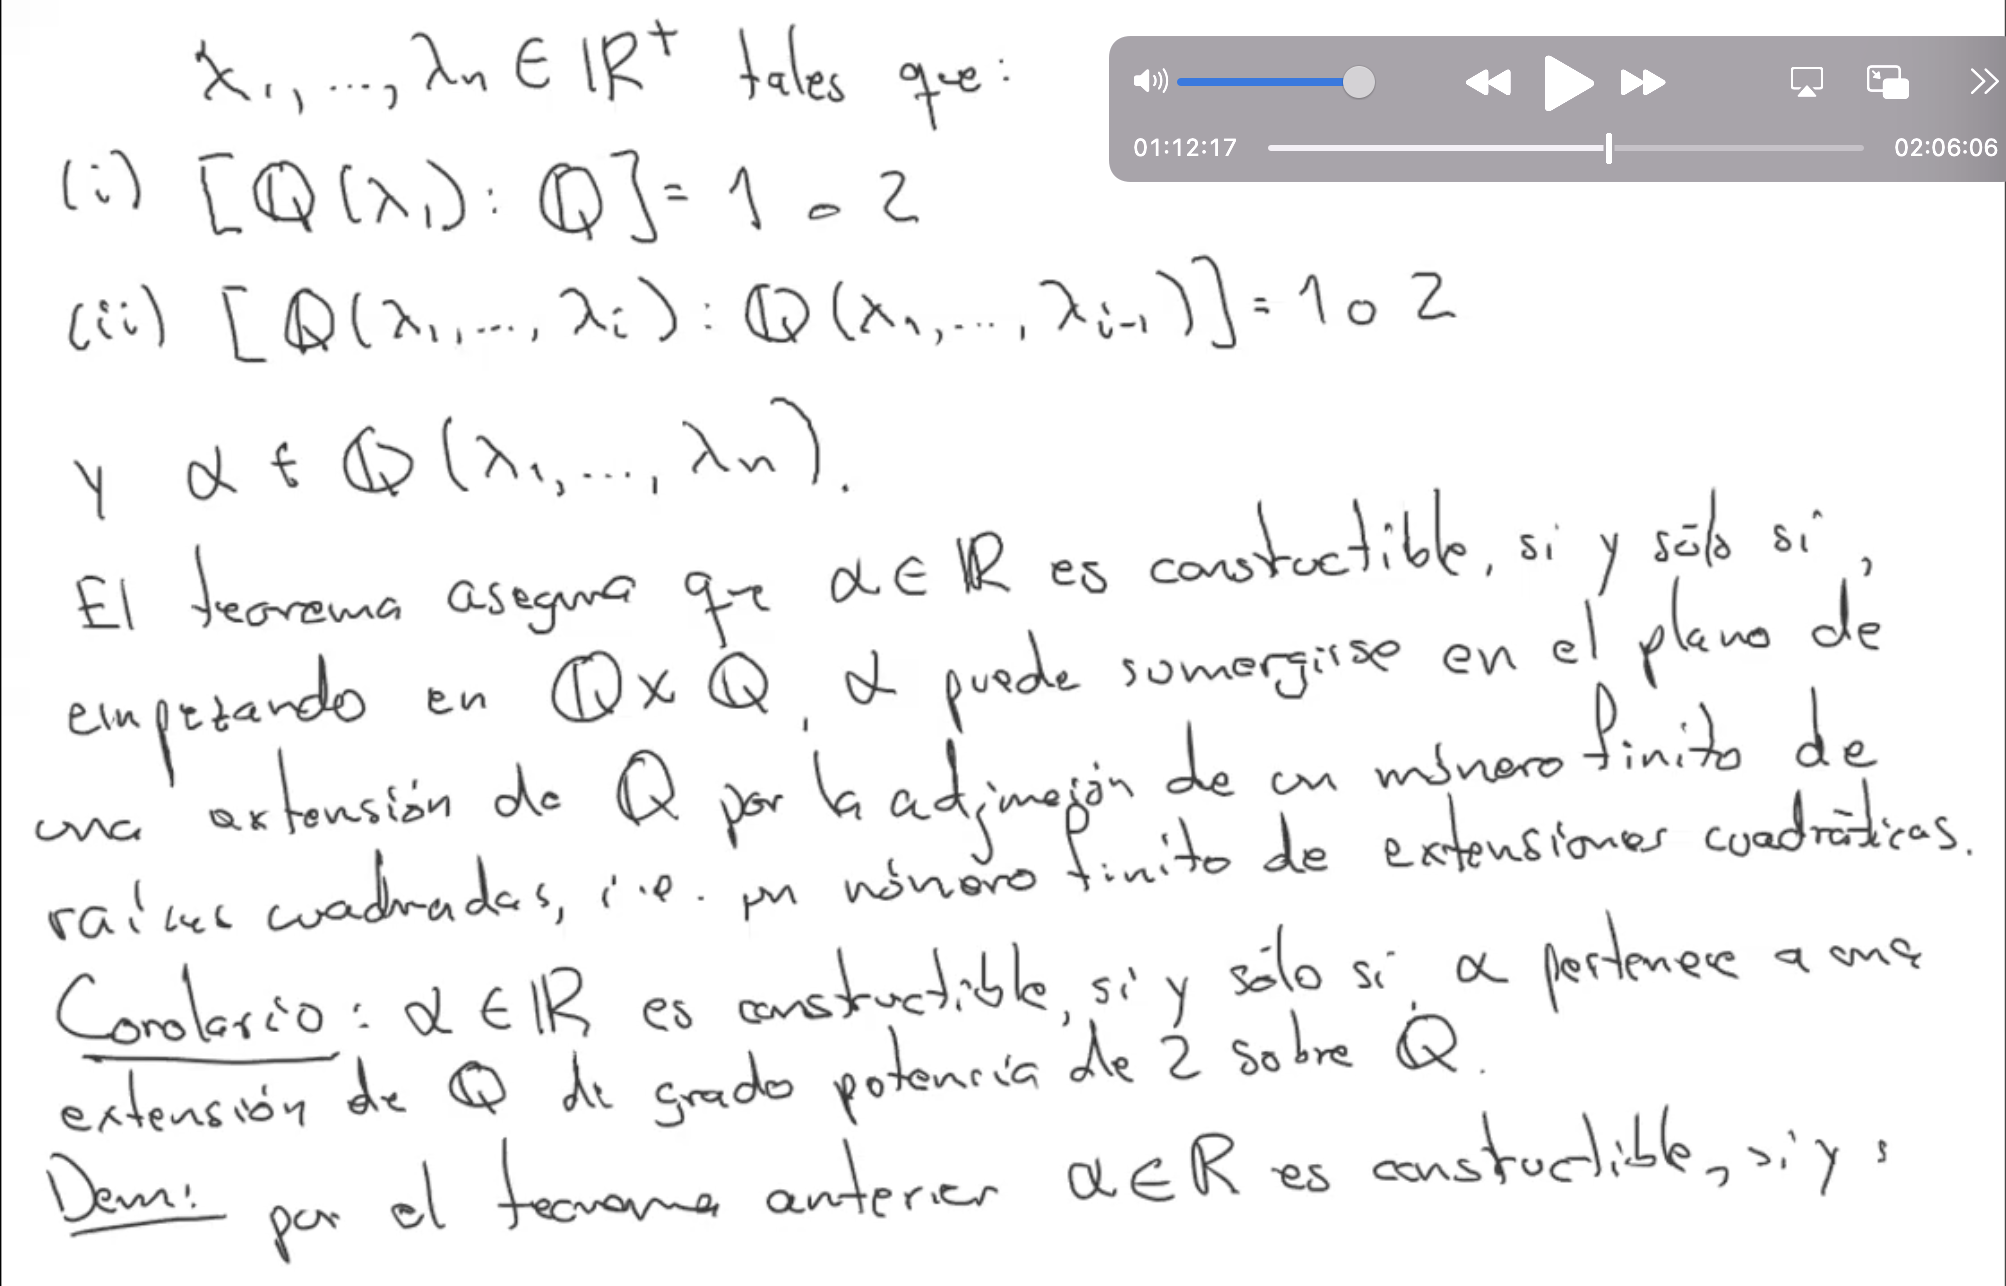 λ₁, ..., λn ∈ ℝ⁺ tales que:
01:12:17 02:06:06
(i) [ℚ(λ₁): ℚ] = 1 o 2
(ii) [ℚ(λ₁, ..., λi): ℚ(λ₁, ..., λi-1)] = 1 o 2
y α ∈ ℚ(λ₁, ..., λn).
El teorema asegura que α ∈ ℝ es constructible, si y sólo si,
empezando en ℚ x ℚ, α puede sumergirse en el plano de
una extensión de ℚ por la adjunción de un número finito de
raíces cuadradas, i.e. un número finito de extensiones cuadráticas.
Corolario: α ∈ ℝ es constructible, si y sólo si α pertenece a una
extensión de ℚ de grado potencia de 2 sobre ℚ.
Dem: por el teorema anterior α ∈ ℝ es constructible, si y s